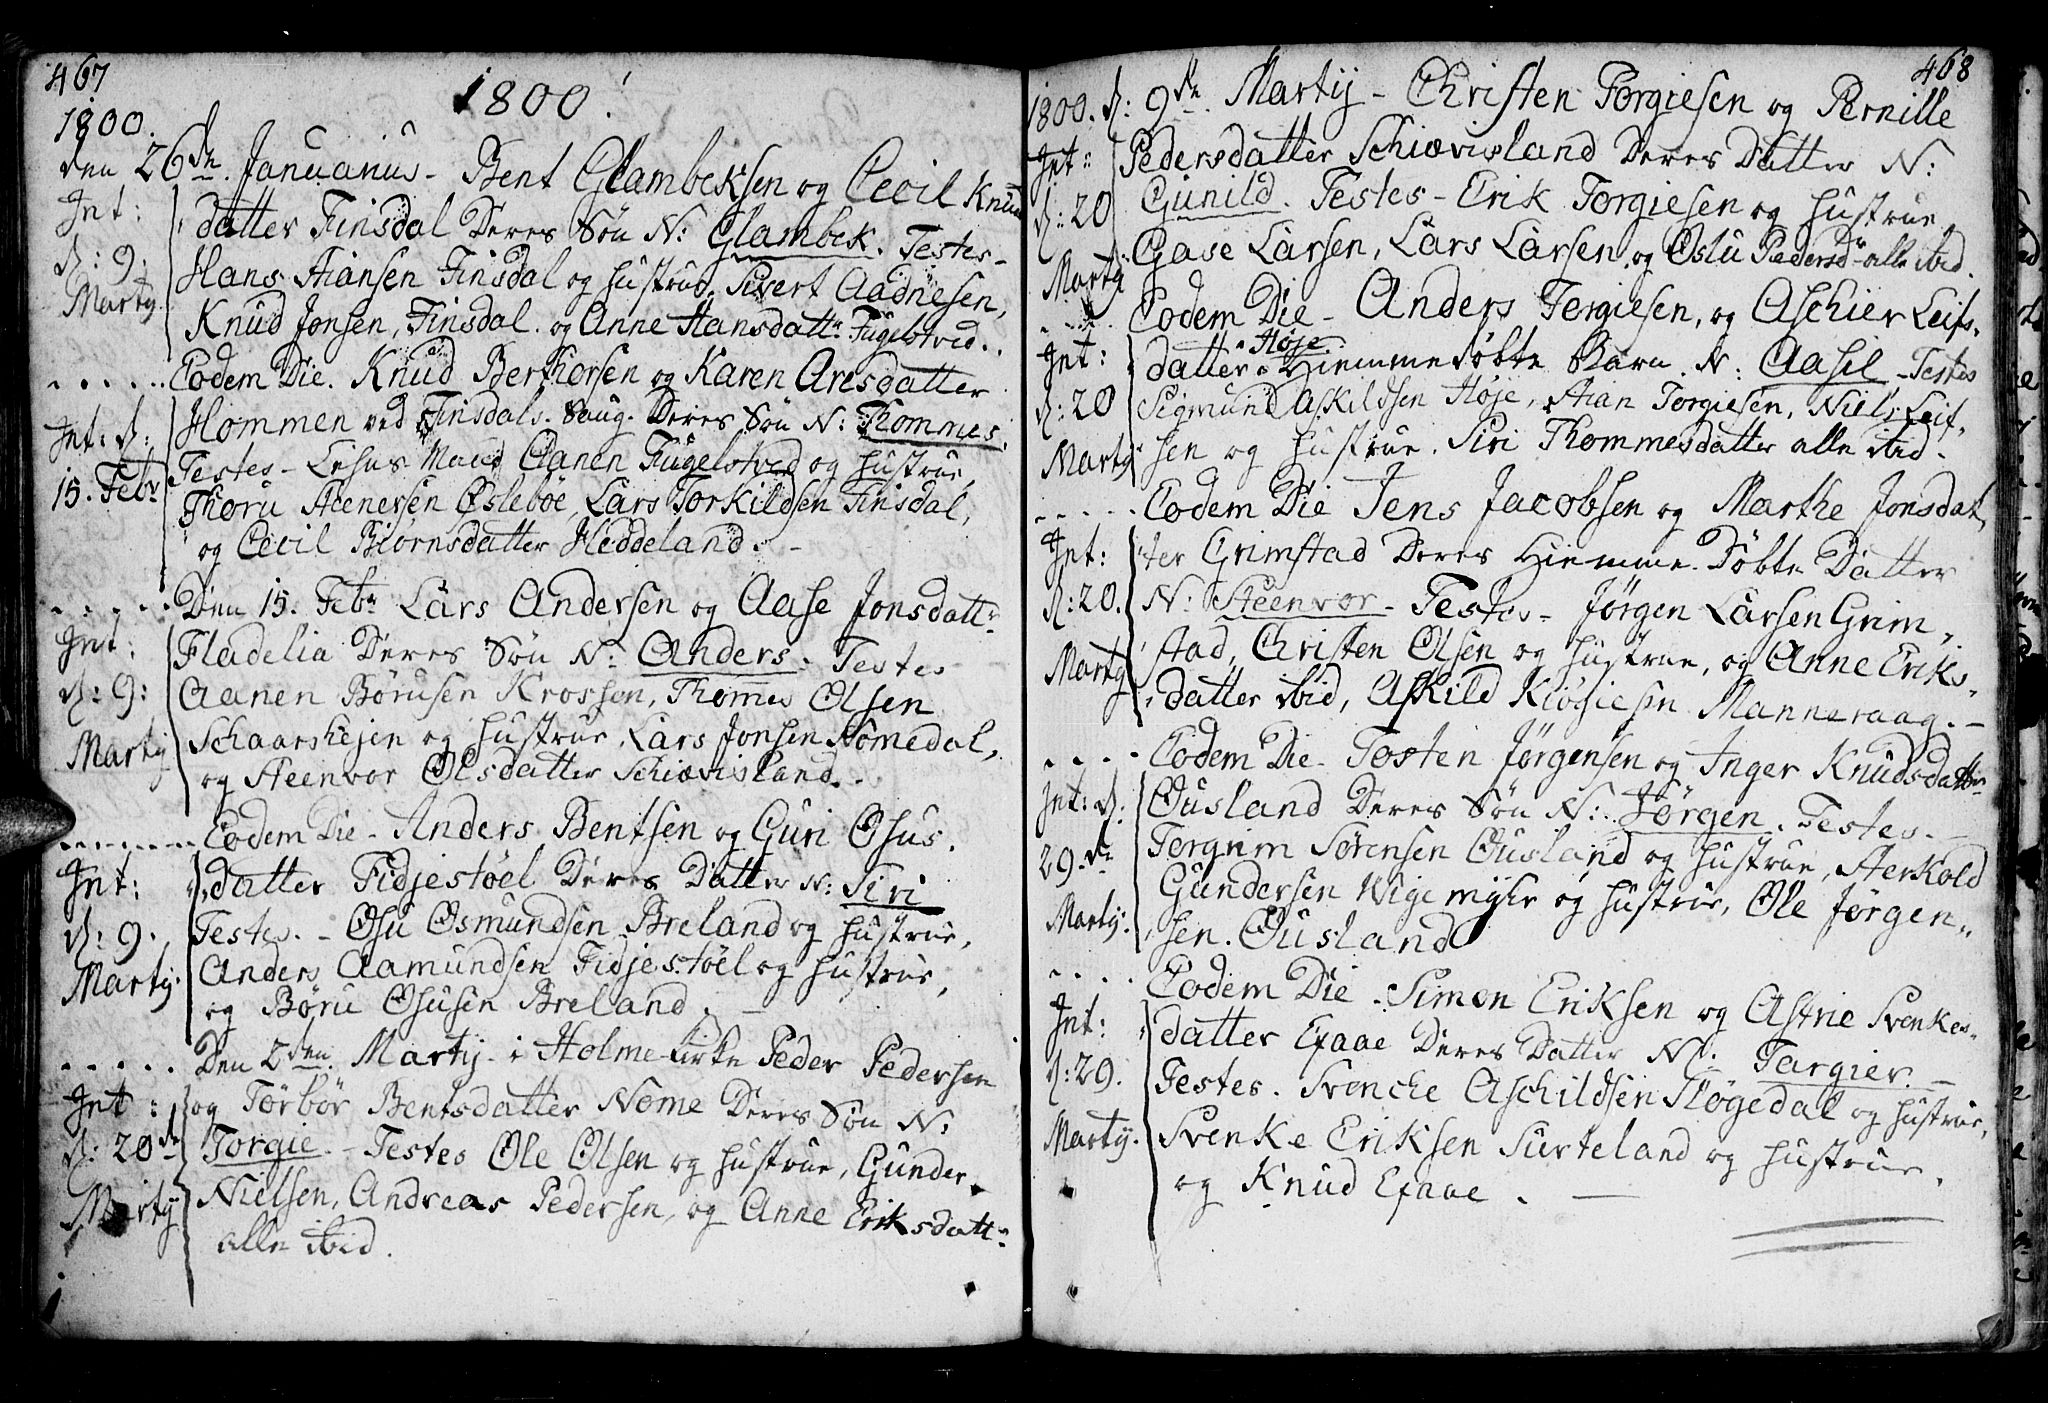 467
1800.
1800.
den 26de Januarius - Bent Glambeksen og Cecil Knuds
Int: datter Finsdal Deres Søn N: Glambek. Testes -
d: 9. Hans Aiansen Finsdal og hustrue, Sivert Aadnesen,
Marty. Knud Jonsen, Finsdal. og Anne Hansdattr Fugelstved.
Eodem Die. Knud Berthorsen og Karen Aresdatter
Int: d: Hommen ved Finsdals. Saug. Deres Søn N: Thommes.
15. Febr Testes - Aanen Fugelstved og hustrue,
Thoru Øslebøe, Lars Torkildsen Finsdal,
og Cecil Biørnsdatter Heddeland. -
Den 15. Febr Lars Andersen og Aase Jonsdattr
Int: Fladelia Deres Søn N: Anders. Testes
d: 9: Aanen Børusen Krossen, Thomes Olsen
Marty Schaarshejen og hustrue, Lars Jonsen Nomedal,
og Steenvor Olsdatter Schiævisland. -
Eodem Die - Anders Bentsen og Guri Osus.
Int: datter Fidjestøel Deres Datter N: Siri
d: 9. Testes. - Osu Osmundsen Breland og hustrue,
Marty. Anders Aamundsen Fidjestøel og hustrue,
og Børu Osusen Breland. -
Den 2den. Marty - i Holme kirke Peder Pedersen
Int: og Torbør Bentsdatter Nome Deres Søn N:
d: 20de Torgie. - Testes Ole Olsen og hustrue, Gunder
Marty Nielsen, Andreas Pedersen, og Anne Eriksdattr
alle ibid.
468
1800. d: 9de Marty - Christen Torgiesen og Pernille
Int: Pedersdatter Schiævisland Deres Datter N:
d: 20 Gunild. Testes - Erik Torgiesen og hustrue
Marty Gase Larsen, Lars Larsen, og Oslu Pedersd - alle ibid.
Eodem Die - Anders Torgiesen, og Aschier Leifs-
Høje
Int: datter Hiemmedøbte Barn. N: Aasil - Testes
d: 20 Sigmund Askildsen Høje, Aian Torgiesen, Niels Leif-
Marty sen og hustrue. Siri Thommesdatter alle ibid.
Eodem Die Jens Jacobsen og Marthe Jonsdat,
Int: ter Grimstad Deres Hiemme. Døbte Datter
d: 20. N: Steenvor - Testes - Jørgen Larsen Grim,
Marty stad, Christen Olsen og hustrue, og Anne Eriks-
datter ibid, Askild Kiøgiesen Manneraag. -
Eodem Die - Tosten Jørgensen og Inger Knudsdatter
Int: d. Ousland Deres Søn N: Jørgen. Testes. -
29.de Torgrim Sørensen Ousland og hustrue, Sterkold
Marty. Gundersen Wigemyhr og hustrue, Ole Jørgen,,
sen. Ousland
Eodem Die. Simon Eriksen og Astrie Svenkes-
Int: datter Efaae Deres Datter N: Targier. -
d: 29. Testes. Svenche Aschildsen Fløgedal og hustrue,
Marty. Svenke Eriksen Surteland og hustrue,
og Knud Efaae. -